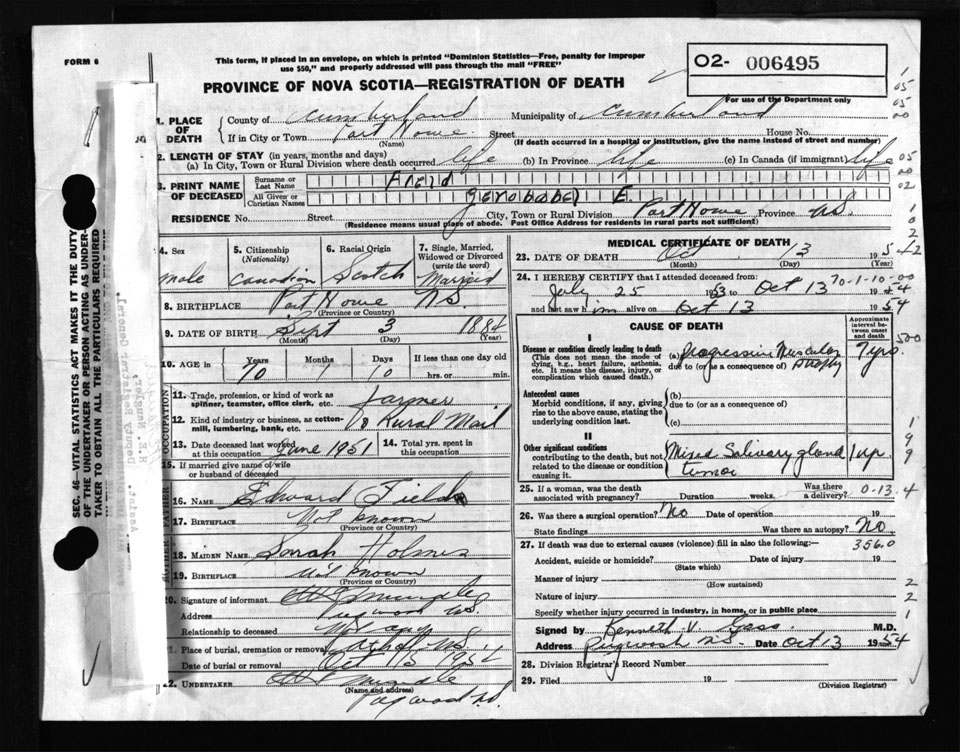 FORM 6
This form, if placed in an envelope, on which is printed "Dominion Statistics—Free, penalty for improper
use $50," and properly addressed will pass through the mail "FREE"
O2- 006495
For use of the Department only
PROVINCE OF NOVA SCOTIA—REGISTRATION OF DEATH
1. PLACE OF DEATH
County of Cumberland Municipality of Cumberland
If in City or Town Port Howe Street House No.
(Name) (If death occurred in a hospital or institution, give the name instead of street and number)
2. LENGTH OF STAY (in years, months and days)
(a) In City, Town or Rural Division where death occurred life (b) In Province life (c) In Canada (if immigrant) life
3. PRINT NAME OF DECEASED
Surname or Last Name Field
All Given or Christian Names Zerobabel E.
RESIDENCE No. Street City, Town or Rural Division Port Howe Province N.S.
(Residence means usual place of abode. Post Office Address for residents in rural parts not sufficient)
4. Sex male
5. Citizenship (Nationality) Canadian
6. Racial Origin Scotch
7. Single, Married, Widowed or Divorced (write the word) Married
8. BIRTHPLACE Port Howe N.S.
(Province or Country)
9. DATE OF BIRTH Sept 3 1884
(Month) (Day) (Year)
10. AGE in Years 70 Months 1 Days 10 If less than one day old hrs. or min.
OCCUPATION
11. Trade, profession, or kind of work as spinner, teamster, office clerk, etc. farmer
12. Kind of industry or business, as cotton-mill, lumbering, bank, etc. & Rural Mail
13. Date deceased last worked at this occupation June 1951
14. Total yrs. spent in this occupation
15. If married give name of wife or husband of deceased
16. NAME Edward Field
17. BIRTHPLACE Not known
(Province or Country)
18. MAIDEN NAME Sarah Holmes
19. BIRTHPLACE Not known
(Province or Country)
20. Signature of informant
Address Pugwash N.S.
Relationship to deceased Not any
21. Place of burial, cremation or removal
Date of burial or removal Oct 15 1954
22. UNDERTAKER
(Name and address)
Pugwash N.S.
MEDICAL CERTIFICATE OF DEATH
23. DATE OF DEATH Oct 13 1954
(Month) (Day) (Year)
24. I HEREBY CERTIFY that I attended deceased from:
July 25 1953 to Oct 13 1954
and last saw him alive on Oct 13 1954
CAUSE OF DEATH
Approximate interval between onset and death
I
Disease or condition directly leading to death
(This does not mean the mode of dying, e.g., heart failure, asthenia, etc. It means the disease, injury, or complication which caused death.)
(a) Progressive Muscular 7 yrs
due to (or as a consequence of)
Antecedent causes
Morbid conditions, if any, giving rise to the above cause, stating the underlying condition last.
(b)
due to (or as a consequence of)
(c)
II
Other significant conditions contributing to the death, but not related to the disease or condition causing it.
Mixed Salivary gland tumor 1 yr.
25. If a woman, was the death associated with pregnancy? Duration weeks. Was there a delivery?
0-13.4
26. Was there a surgical operation? No Date of operation 19
State findings Was there an autopsy? No
27. If death was due to external causes (violence) fill in also the following:— 3560
Accident, suicide or homicide? Date of injury 19
(State which)
Manner of injury
(How sustained)
Nature of injury
Specify whether injury occurred in industry, in home, or in public place
Signed by Kenneth V. Gass M.D.
Address Pugwash N.S. Date Oct 13 1954
28. Division Registrar's Record Number
29. Filed 19
(Division Registrar)
SEC. 46—VITAL STATISTICS ACT MAKES IT THE DUTY
OF THE UNDERTAKER OR PERSON ACTING AS UNDER-
TAKER TO OBTAIN ALL THE PARTICULARS REQUIRED
Deputy Registrar General.